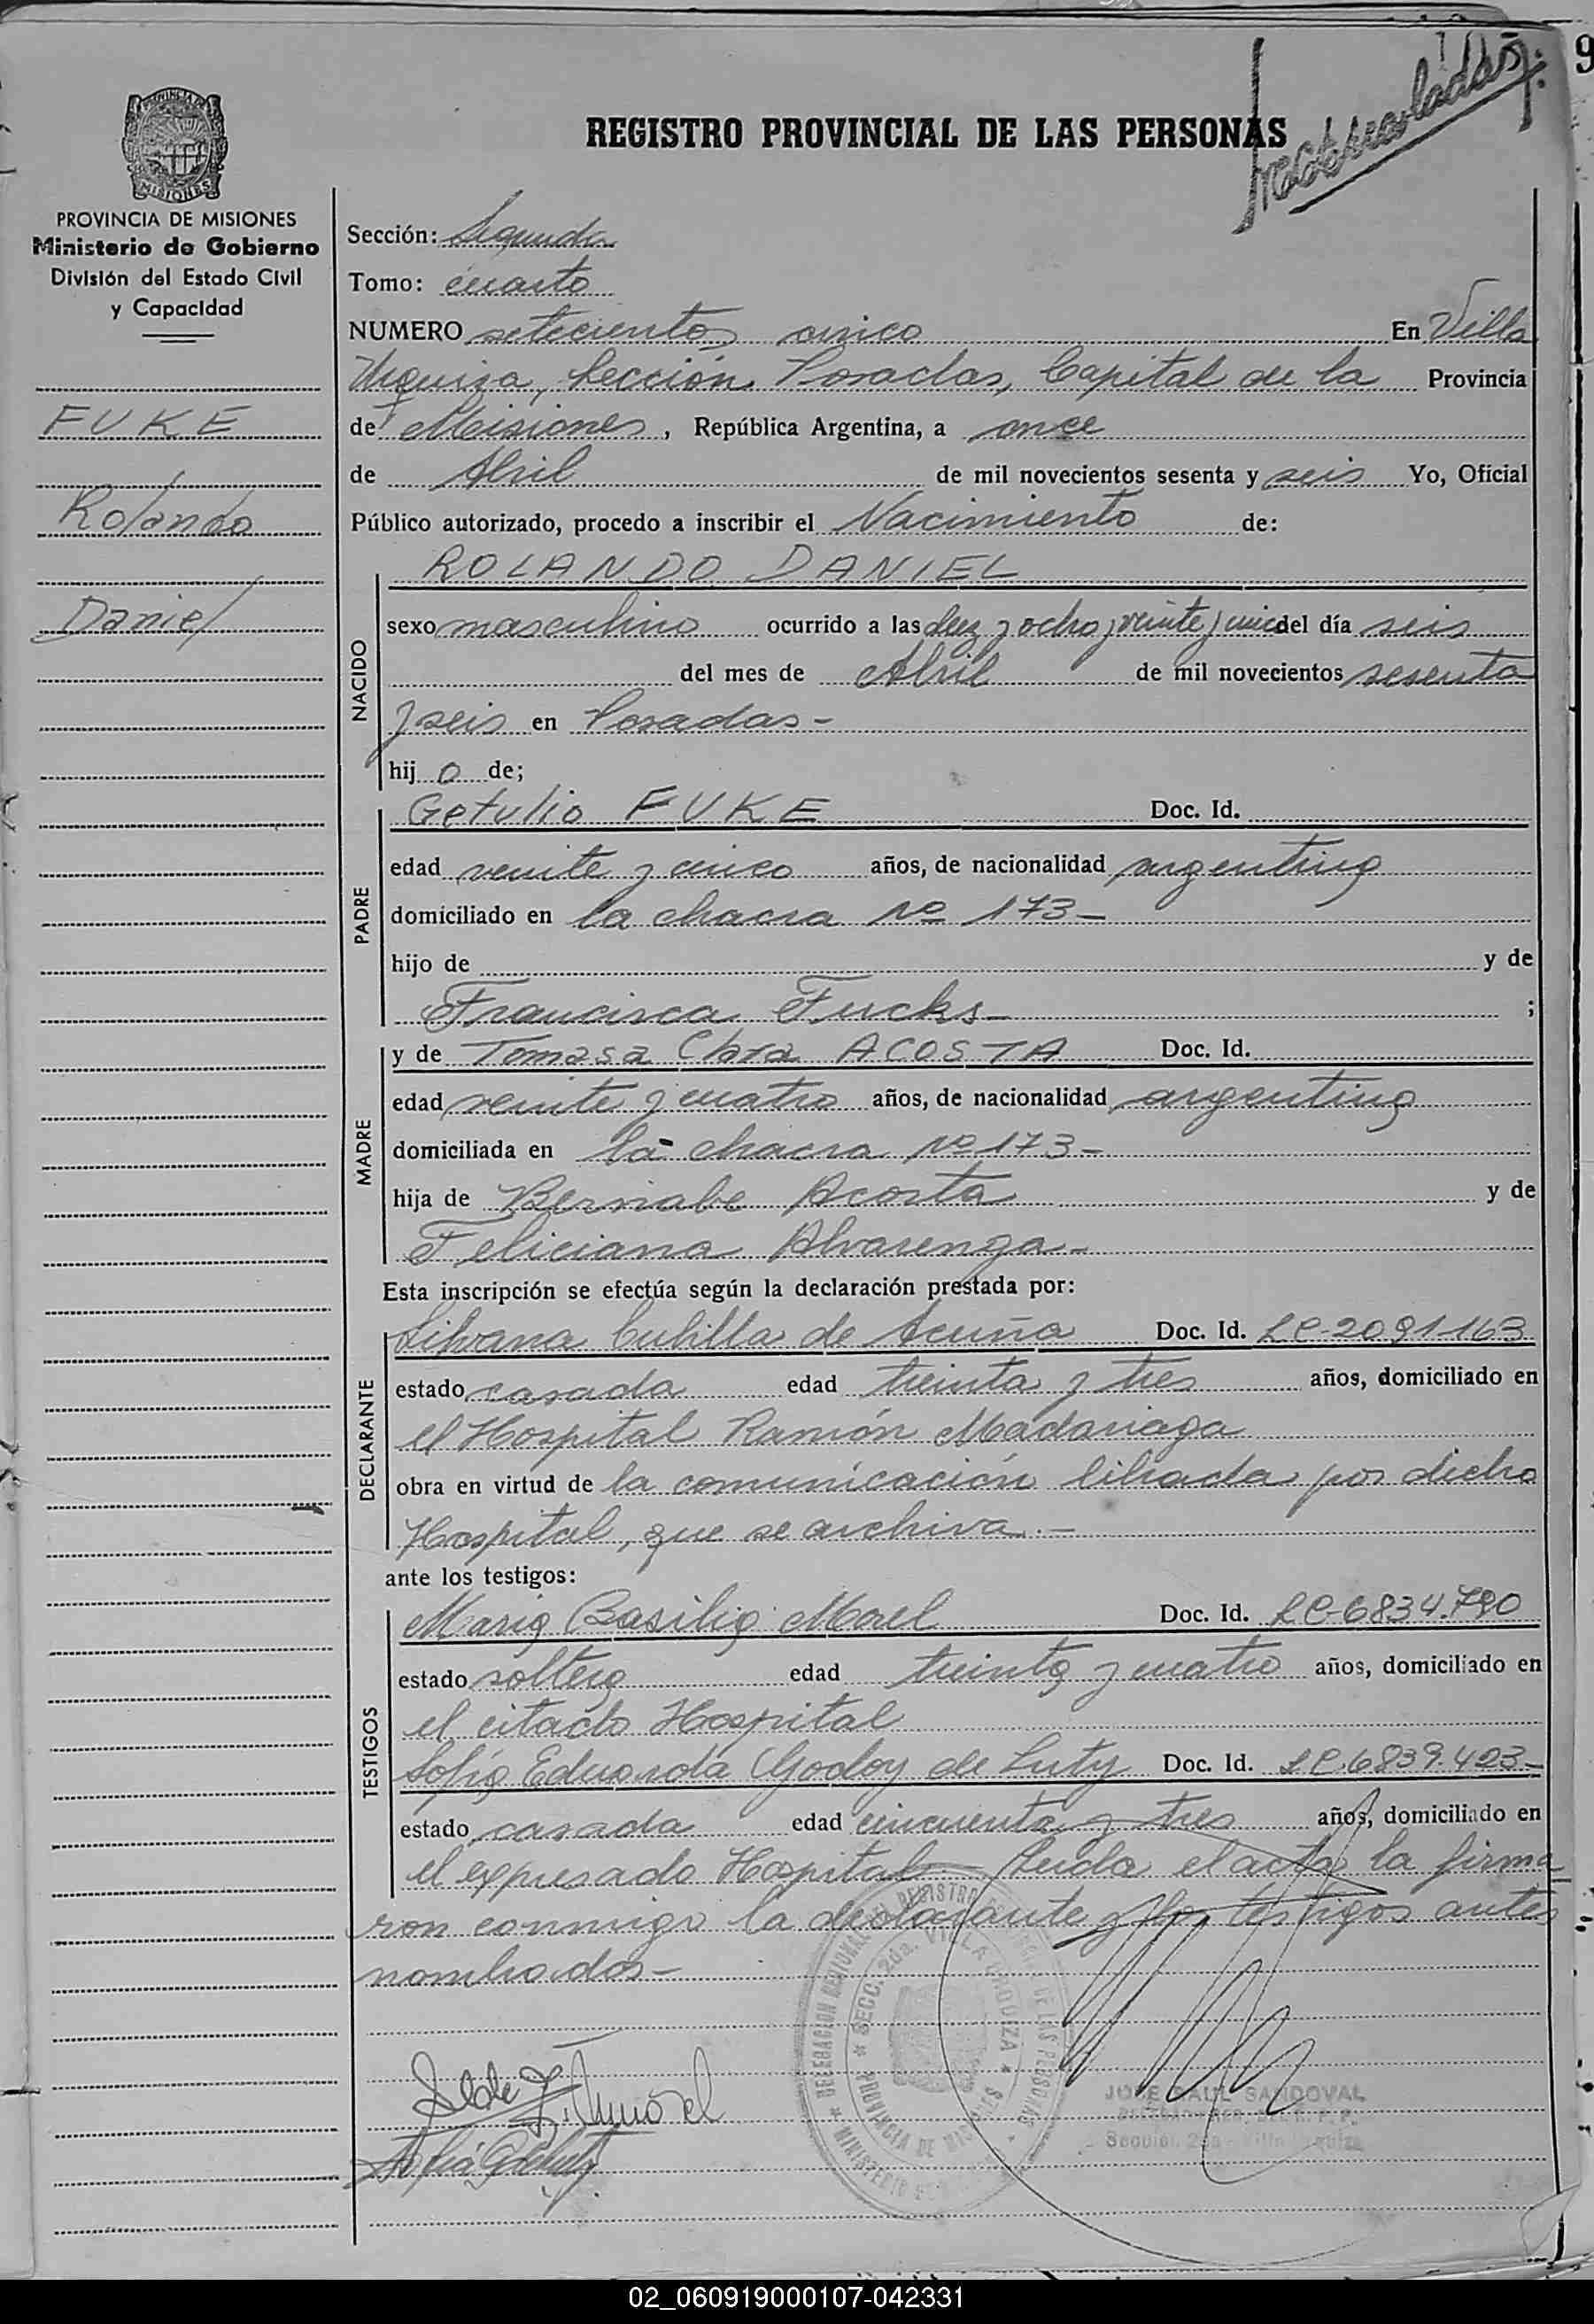 9
Matriculados
PROVINCIA DE MISIONES
PROVINCIA DE MISIONES
Ministerio de Gobierno
División del Estado Civil
y Capacidad
FUKE
Rolando
Daniel
REGISTRO PROVINCIAL DE LAS PERSONAS
Sección: Segunda
Tomo: cuarto
NUMERO setecientos cinco En Villa
Urquiza, Sección Posadas, Capital de la Provincia
de Misiones, República Argentina, a once
de Abril de mil novecientos sesenta y seis Yo, Oficial
Público autorizado, procedo a inscribir el Nacimiento de:
ROLANDO DANIEL
NACIDO
sexo masculino ocurrido a las diez y ocho y veinte y cinco del día seis
del mes de Abril de mil novecientos sesenta
y seis en Posadas-
hijo de;
PADRE
Getulio FUKE Doc. Id.
edad veinte y cinco años, de nacionalidad argentina
domiciliado en la chacra Nº 173-
hijo de y de
Francisca Fucks- ;
MADRE
y de Tomasa Clara ACOSTA Doc. Id.
edad veinte y cuatro años, de nacionalidad argentina
domiciliada en la chacra Nº 173-
hija de Bernabe Acosta y de
Feliciana Alvarenga-
Esta inscripción se efectúa según la declaración prestada por:
DECLARANTE
Silvana Cubilla de Acuña Doc. Id. LC-2091163
estado casada edad treinta y tres años, domiciliado en
el Hospital Ramón Madariaga
obra en virtud de la comunicación librada por dicho
Hospital, que se archiva.-
ante los testigos:
TESTIGOS
Maria Basilia Morel Doc. Id. LC-6834.790
estado soltera edad treinta y cuatro años, domiciliado en
el citado Hospital
Sofia Eduarda Godoy de Luty Doc. Id. LC.6839.423-
estado casada edad cincuenta y tres años, domiciliado en
el expresado Hospital- Leida el acta la firma
ron conmigo la declarante y los testigos antes
nombrados-
DELEGACION REGIONAL DEL REGISTRO PROVINCIAL DE LAS PERSONAS
SECC. 2da. VILLA URQUIZA
PROVINCIA DE MISIONES
MINISTERIO
JOSE RAUL SANDOVAL
Sección 2da - Villa Urquiza
02_060919000107-042331